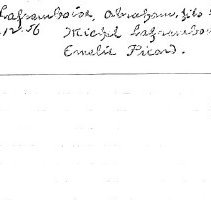 Laframboise, Abraham, fils
12.56 Michel Laframbo
Emelie Picard.